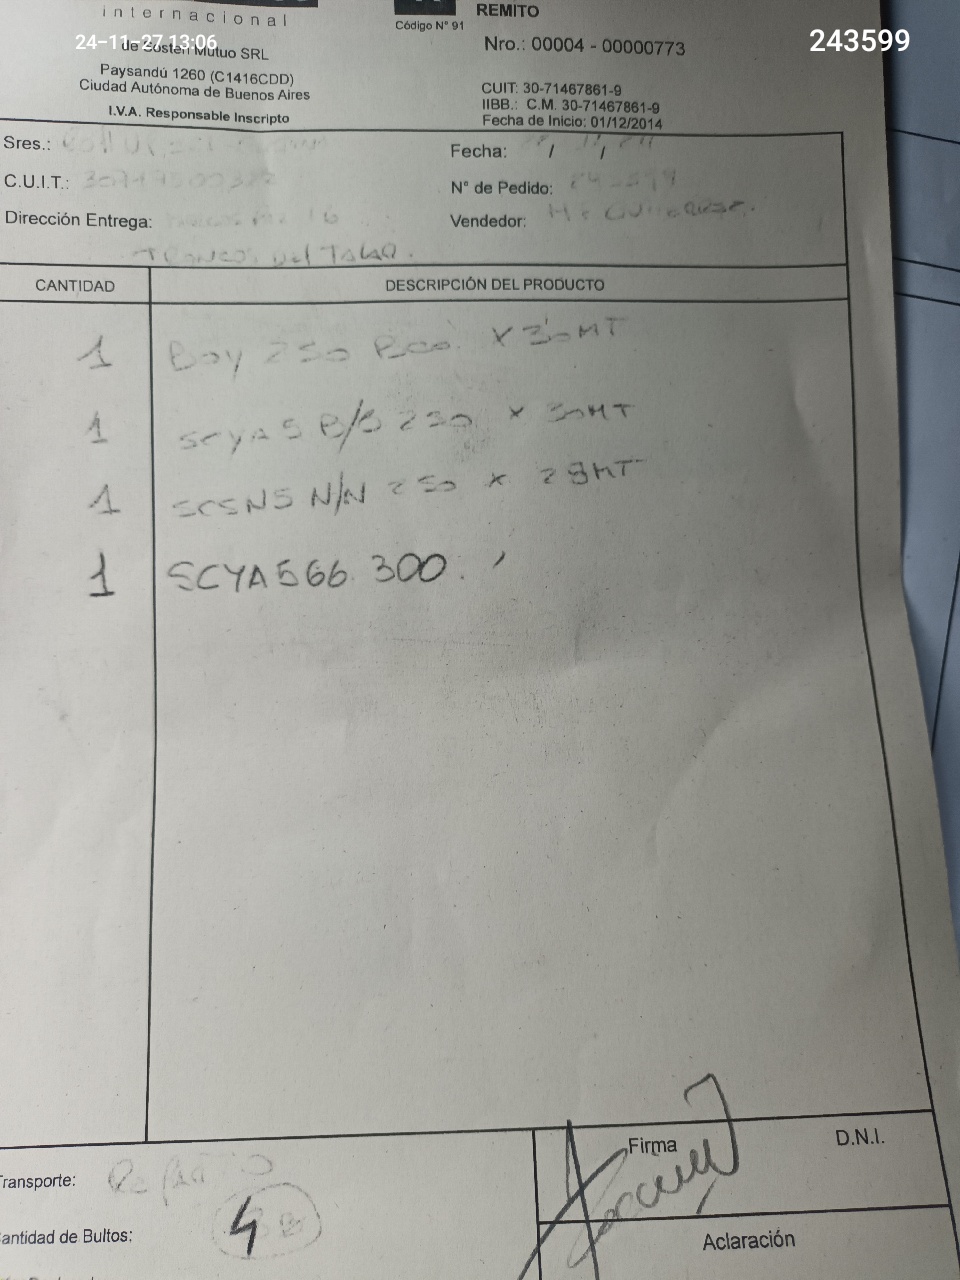 internacional
Código N° 91
REMITO
24-11-27 13:06
243599
de Sostén Mutuo SRL
Nro.: 00004 - 00000773
Paysandú 1260 (C1416CDD)
Ciudad Autónoma de Buenos Aires
I.V.A. Responsable Inscripto
CUIT: 30-71467861-9
IIBB.: C.M. 30-71467861-9
Fecha de Inicio: 01/12/2014
Sres.:
Fecha: / /
C.U.I.T.:
N° de Pedido: 243599
Dirección Entrega:
Vendedor:
Troncos del Talar.
CANTIDAD DESCRIPCIÓN DEL PRODUCTO
1 Boy 250 Bco. x 30MT
1 SCYA5 B/B 250 x 30MT
1 SCSNS N/N 250 x 28MT
1 SCYA566 300.
Firma
D.N.I.
Transporte:
Cantidad de Bultos: 4
Aclaración